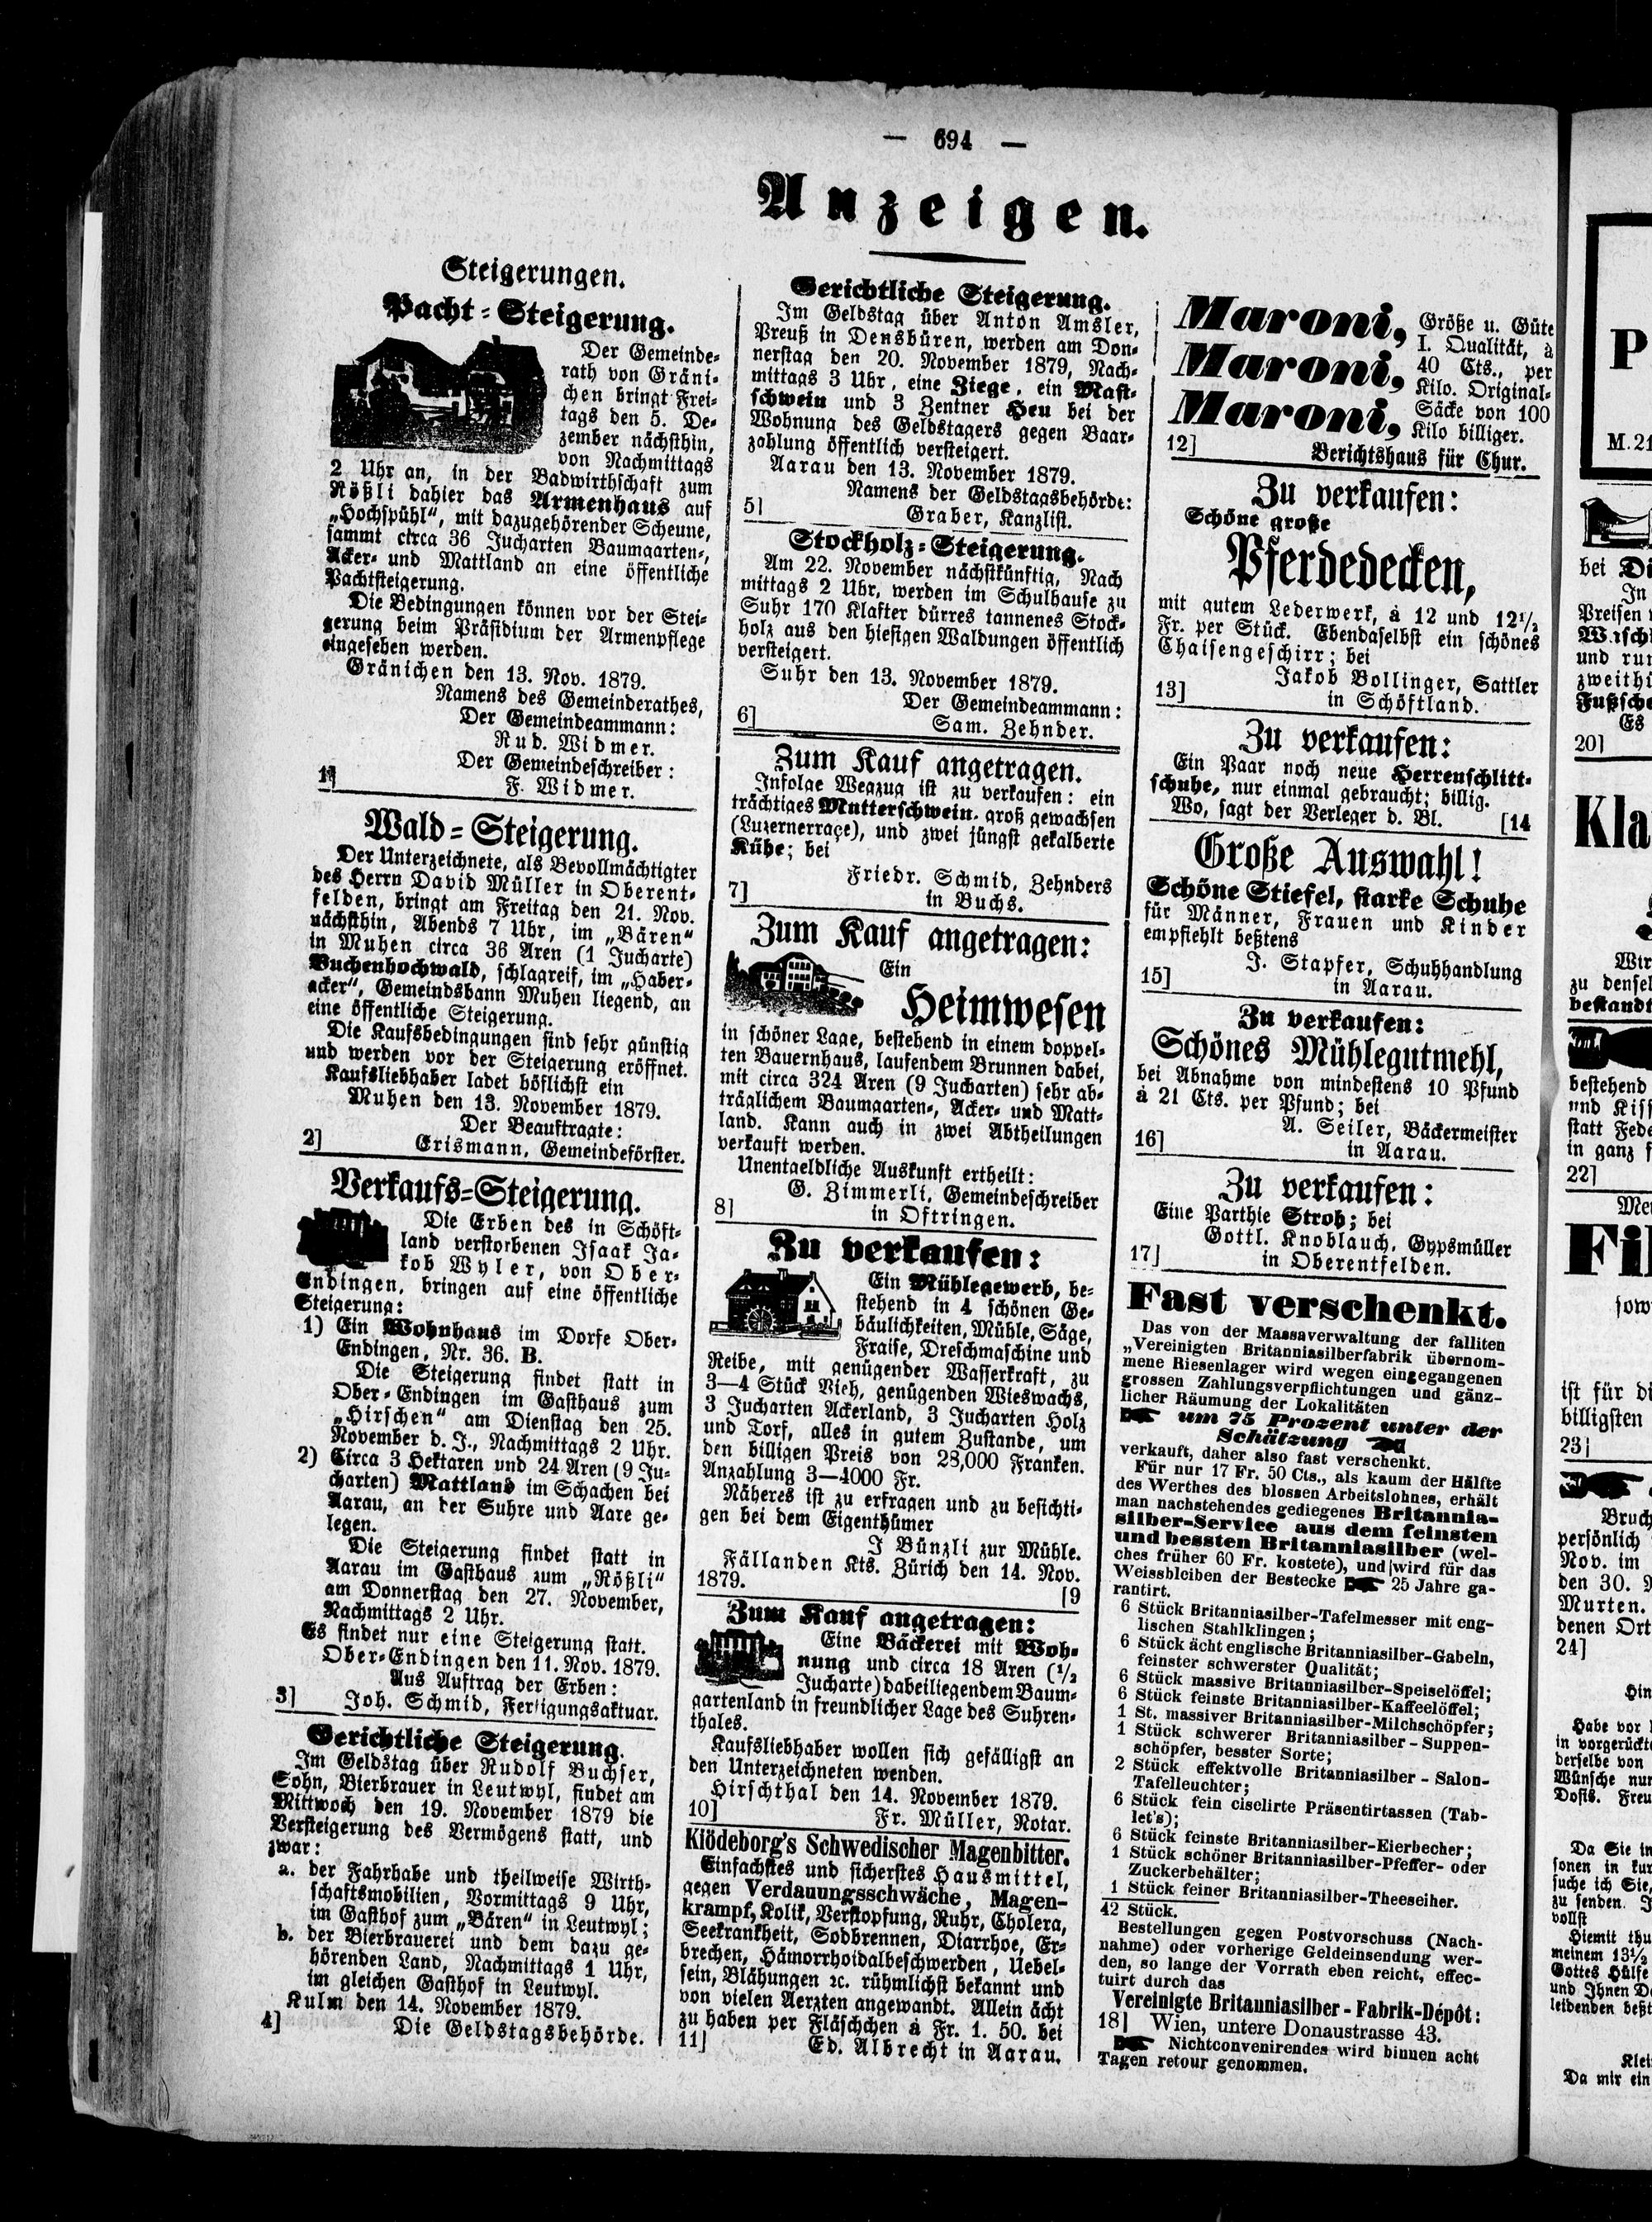 — 694 —
Anzeigen.
Steigerungen.
Pacht-Steigerung.
Der Gemeinde-
rath von Gräni-
chen bringt Frei-
tags den 5. De-
zember nächsthin,
von Nachmittags
2 Uhr an, in der Badwirthschaft zum
Rößli dahier das Armenhaus auf
„Hochspühl“, mit dazugehörender Scheune,
sammt circa 36 Jucharten Baumgarten-,
Acker- und Mattland an eine öffentliche
Pachtsteigerung.
Die Bedingungen können vor der Stei-
gerung beim Präsidium der Armenpflege
eingesehen werden.
Gränichen den 13. Nov. 1879.
Namens des Gemeinderathes,
Der Gemeindeammann:
Rud. Widmer.
Der Gemeindeschreiber:
1] F. Widmer.
Wald-Steigerung.
Der Unterzeichnete, als Bevollmächtigter
des Herrn David Müller in Oberent-
felden, bringt am Freitag den 21. Nov.
nächsthin, Abends 7 Uhr, im „Bären“
in Muhen circa 36 Aren (1 Jucharte)
Buchenhochwald, schlagreif, im „Haber-
acker“, Gemeindsbann Muhen liegend, an
eine öffentliche Steigerung.
Die Kaufsbedingungen sind sehr günstig
und werden vor der Steigerung eröffnet.
Kaufsliebhaber ladet höflichst ein
Muhen den 13. November 1879.
Der Beauftragte:
2] Erismann, Gemeindeförster.
Verkaufs-Steigerung.
Die Erben des in Schöft-
land verstorbenen Isaak Ja-
kob Wyler, von Ober-
Endingen, bringen auf eine öffentliche
Steigerung:
1) Ein Wohnhaus im Dorfe Ober-
Endingen, Nr. 36. B.
Die Steigerung findet statt in
Ober-Endingen im Gasthaus zum
„Hirschen“ am Dienstag den 25.
November d. J., Nachmittags 2 Uhr.
2) Circa 3 Hektaren und 24 Aren (9 Ju-
charten) Mattland im Schachen bei
Aarau, an der Suhre und Aare ge-
legen.
Die Steigerung findet statt in
Aarau im Gasthaus zum „Rößli“
am Donnerstag den 27. November,
Nachmittags 2 Uhr.
Es findet nur eine Steigerung statt.
Ober-Endingen den 11. Nov. 1879.
Aus Auftrag der Erben:
3] Joh. Schmid, Fertigungsaktuar.
Gerichtliche Steigerung.
Im Geldstag über Rudolf Buchser,
Sohn, Bierbrauer in Leutwyl, findet am
Mittwoch den 19. November 1879 die
Versteigerung des Vermögens statt, und
zwar:
a. der Fahrhabe und theilweise Wirth-
schaftsmobilien, Vormittags 9 Uhr,
im Gasthof zum „Bären“ in Leutwyl;
b. der Bierbrauerei und dem dazu ge-
hörenden Land, Nachmittags 1 Uhr,
im gleichen Gasthof in Leutwyl.
Kulm den 14. November 1879.
4] Die Geldstagsbehörde.
Gerichtliche Steigerung.
Im Geldstag über Anton Amsler,
Preuß in Densbüren, werden am Don-
nerstag den 20. November 1879, Nach-
mittags 3 Uhr, eine Ziege, ein Mast-
schwein und 3 Zentner Heu bei der
Wohnung des Geldstagers gegen Baar-
zahlung öffentlich versteigert.
Aarau den 13. November 1879.
Namens der Geldstagsbehörde:
5] Graber, Kanzlist.
Stockholz-Steigerung.
Am 22. November nächstkünftig, Nach
mittags 2 Uhr, werden im Schulhause zu
Suhr 170 Klafter dürres tannenes Stock-
holz aus den hiesigen Waldungen öffentlich
versteigert.
Suhr den 13. November 1879.
Der Gemeindeammann:
6] Sam. Zehnder.
Zum Kauf angetragen.
Infolge Wegzug ist zu verkaufen: ein
trächtiges Mutterschwein, groß gewachsen
(Luzernerraçe), und zwei jüngst gekalberte
Kühe; bei
Friedr. Schmid, Zehnders
7] in Buchs.
Zum Kauf angetragen:
Ein
Heimwesen
in schöner Lage, bestehend in einem doppel-
ten Bauernhaus, laufendem Brunnen dabei,
mit circa 324 Aren (9 Jucharten) sehr ab-
träglichem Baumgarten-, Acker- und Matt-
land. Kann auch in zwei Abtheilungen
verkauft werden.
Unentgeldliche Auskunft ertheilt:
G. Zimmerli, Gemeindeschreiber
8] in Oftringen.
Zu verkaufen:
Ein Mühlegewerb, be-
stehend in 4 schönen Ge-
bäulichkeiten, Mühle, Säge,
Fraise, Dreschmaschine und
Reibe, mit genügender Wasserkraft, zu
3—4 Stück Vieh, genügenden Wieswachs,
3 Jucharten Ackerland, 3 Jucharten Holz
und Torf, alles in gutem Zustande, um
den billigen Preis von 28,000 Franken.
Anzahlung 3—4000 Fr.
Näheres ist zu erfragen und zu besichti-
gen bei dem Eigenthümer
J Bünzli zur Mühle.
Fällanden Kts. Zürich den 14. Nov.
1879. [9
Zum Kauf angetragen:
Eine Bäckerei mit Woh-
nung und circa 18 Aren (½
Jucharte) dabeiliegendem Baum-
gartenland in freundlicher Lage des Suhren-
thales.
Kaufsliebhaber wollen sich gefälligst an
den Unterzeichneten wenden.
Hirschthal den 14. November 1879.
10] Fr. Müller, Notar.
Klödeborg's Schwedischer Magenbitter.
Einfachstes und sicherstes Hausmittel,
gegen Verdauungsschwäche, Magen-
krampf, Kolik, Verstopfung, Ruhr, Cholera,
Seekrankheit, Sodbrennen, Diarrhoe, Er-
brechen, Hämorrhoidalbeschwerden, Uebel-
sein, Blähungen ꝛc. rühmlichst bekannt und
von vielen Aerzten angewandt. Allein ächt
zu haben per Fläschchen à Fr. 1. 50. bei
11] Ed. Albrecht in Aarau.
Maroni, Größe u. Güte
I. Qualität, à
Maroni, 40 Cts., per
Kilo. Original-
Maroni, Säcke von 100
Kilo billiger.
12] Berichtshaus für Chur.
Zu verkaufen:
Schöne große
Pferdedecken,
mit gutem Lederwerk, à 12 und 12½
Fr. per Stück. Ebendaselbst ein schönes
Chaisengeschirr; bei
Jakob Bollinger, Sattler
13] in Schöftland.
Zu verkaufen:
Ein Paar noch neue Herrenschlitt-
schuhe, nur einmal gebraucht; billig.
Wo, sagt der Verleger d. Bl. [14
Große Auswahl!
Schöne Stiefel, starke Schuhe
für Männer, Frauen und Kinder
empfiehlt beßtens
J. Stapfer, Schuhhandlung
15] in Aarau.
Zu verkaufen:
Schönes Mühlegutmehl,
bei Abnahme von mindestens 10 Pfund
à 21 Cts. per Pfund; bei
A. Seiler, Bäckermeister
16] in Aarau.
Zu verkaufen:
Eine Parthie Stroh; bei
Gottl. Knoblauch, Gypsmüller
17] in Oberentfelden.
Fast verschenkt.
Das von der Massaverwaltung der falliten
„Vereinigten Britanniasilberfabrik übernom-
mene Riesenlager wird wegen eingegangenen
grossen Zahlungsverpflichtungen und gänz-
licher Räumung der Lokalitäten
um 75 Prozent unter der
Schätzung
verkauft, daher also fast verschenkt.
Für nur 17 Fr. 50 Cts., als kaum der Hälfte
des Werthes des blossen Arbeitslohnes, erhält
man nachstehendes gediegenes Britannia-
silber-Service aus dem feinsten
und bessten Britanniasilber (wel-
ches früher 60 Fr. kostete), und wird für das
Weissbleiben der Bestecke 25 Jahre ga-
rantirt.
6 Stück Britanniasilber-Tafelmesser mit eng-
lischen Stahlklingen;
6 Stück ächt englische Britanniasilber-Gabeln,
feinster schwerster Qualität;
6 Stück massive Britanniasilber-Speiselöffel;
6 Stück feinste Britanniasilber-Kaffeelöffel;
1 St. massiver Britanniasilber-Milchschöpfer;
1 Stück schwerer Britanniasilber-Suppen-
schöpfer, besster Sorte;
2 Stück effektvolle Britanniasilber-Salon-
Tafelleuchter;
6 Stück fein ciselirte Präsentirtassen (Tab-
let's);
6 Stück feinste Britanniasilber-Eierbecher;
1 Stück schöner Britanniasilber-Pfeffer- oder
Zuckerbehälter;
1 Stück feiner Britanniasilber-Theeseiher.
42 Stück.
Bestellungen gegen Postvorschuss (Nach-
nahme) oder vorherige Geldeinsendung wer-
den, so lange der Vorrath eben reicht, effec-
tuirt durch das
Vereinigte Britanniasilber-Fabrik-Dépôt:
18] Wien, untere Donaustrasse 43.
Nichtconvenirendes wird binnen acht
Tagen retour genommen.
P
M. 21
bei
In
Preisen
und
zweith
Es
20]
Kla
Wir
zu densel
bestand
bestehend
und Kiss
statt Fede
in ganz
22]
Fil
sow
ist für di
billigsten
23]
Bruch
persönlich
Nov. im
den 30.
Murten.
denen Ort
24]
Hin
Habe vor
in vorgerückt
derselbe von
Wünsche nur
Dosis. Freu
Da Sie in
sonen in kur
suche ich Sie,
zu senden.
vollst
Hiemit thu
meinem 13½
Gottes Hülfe
und Ihnen
leidenden beßt
Klei
Da mir ein